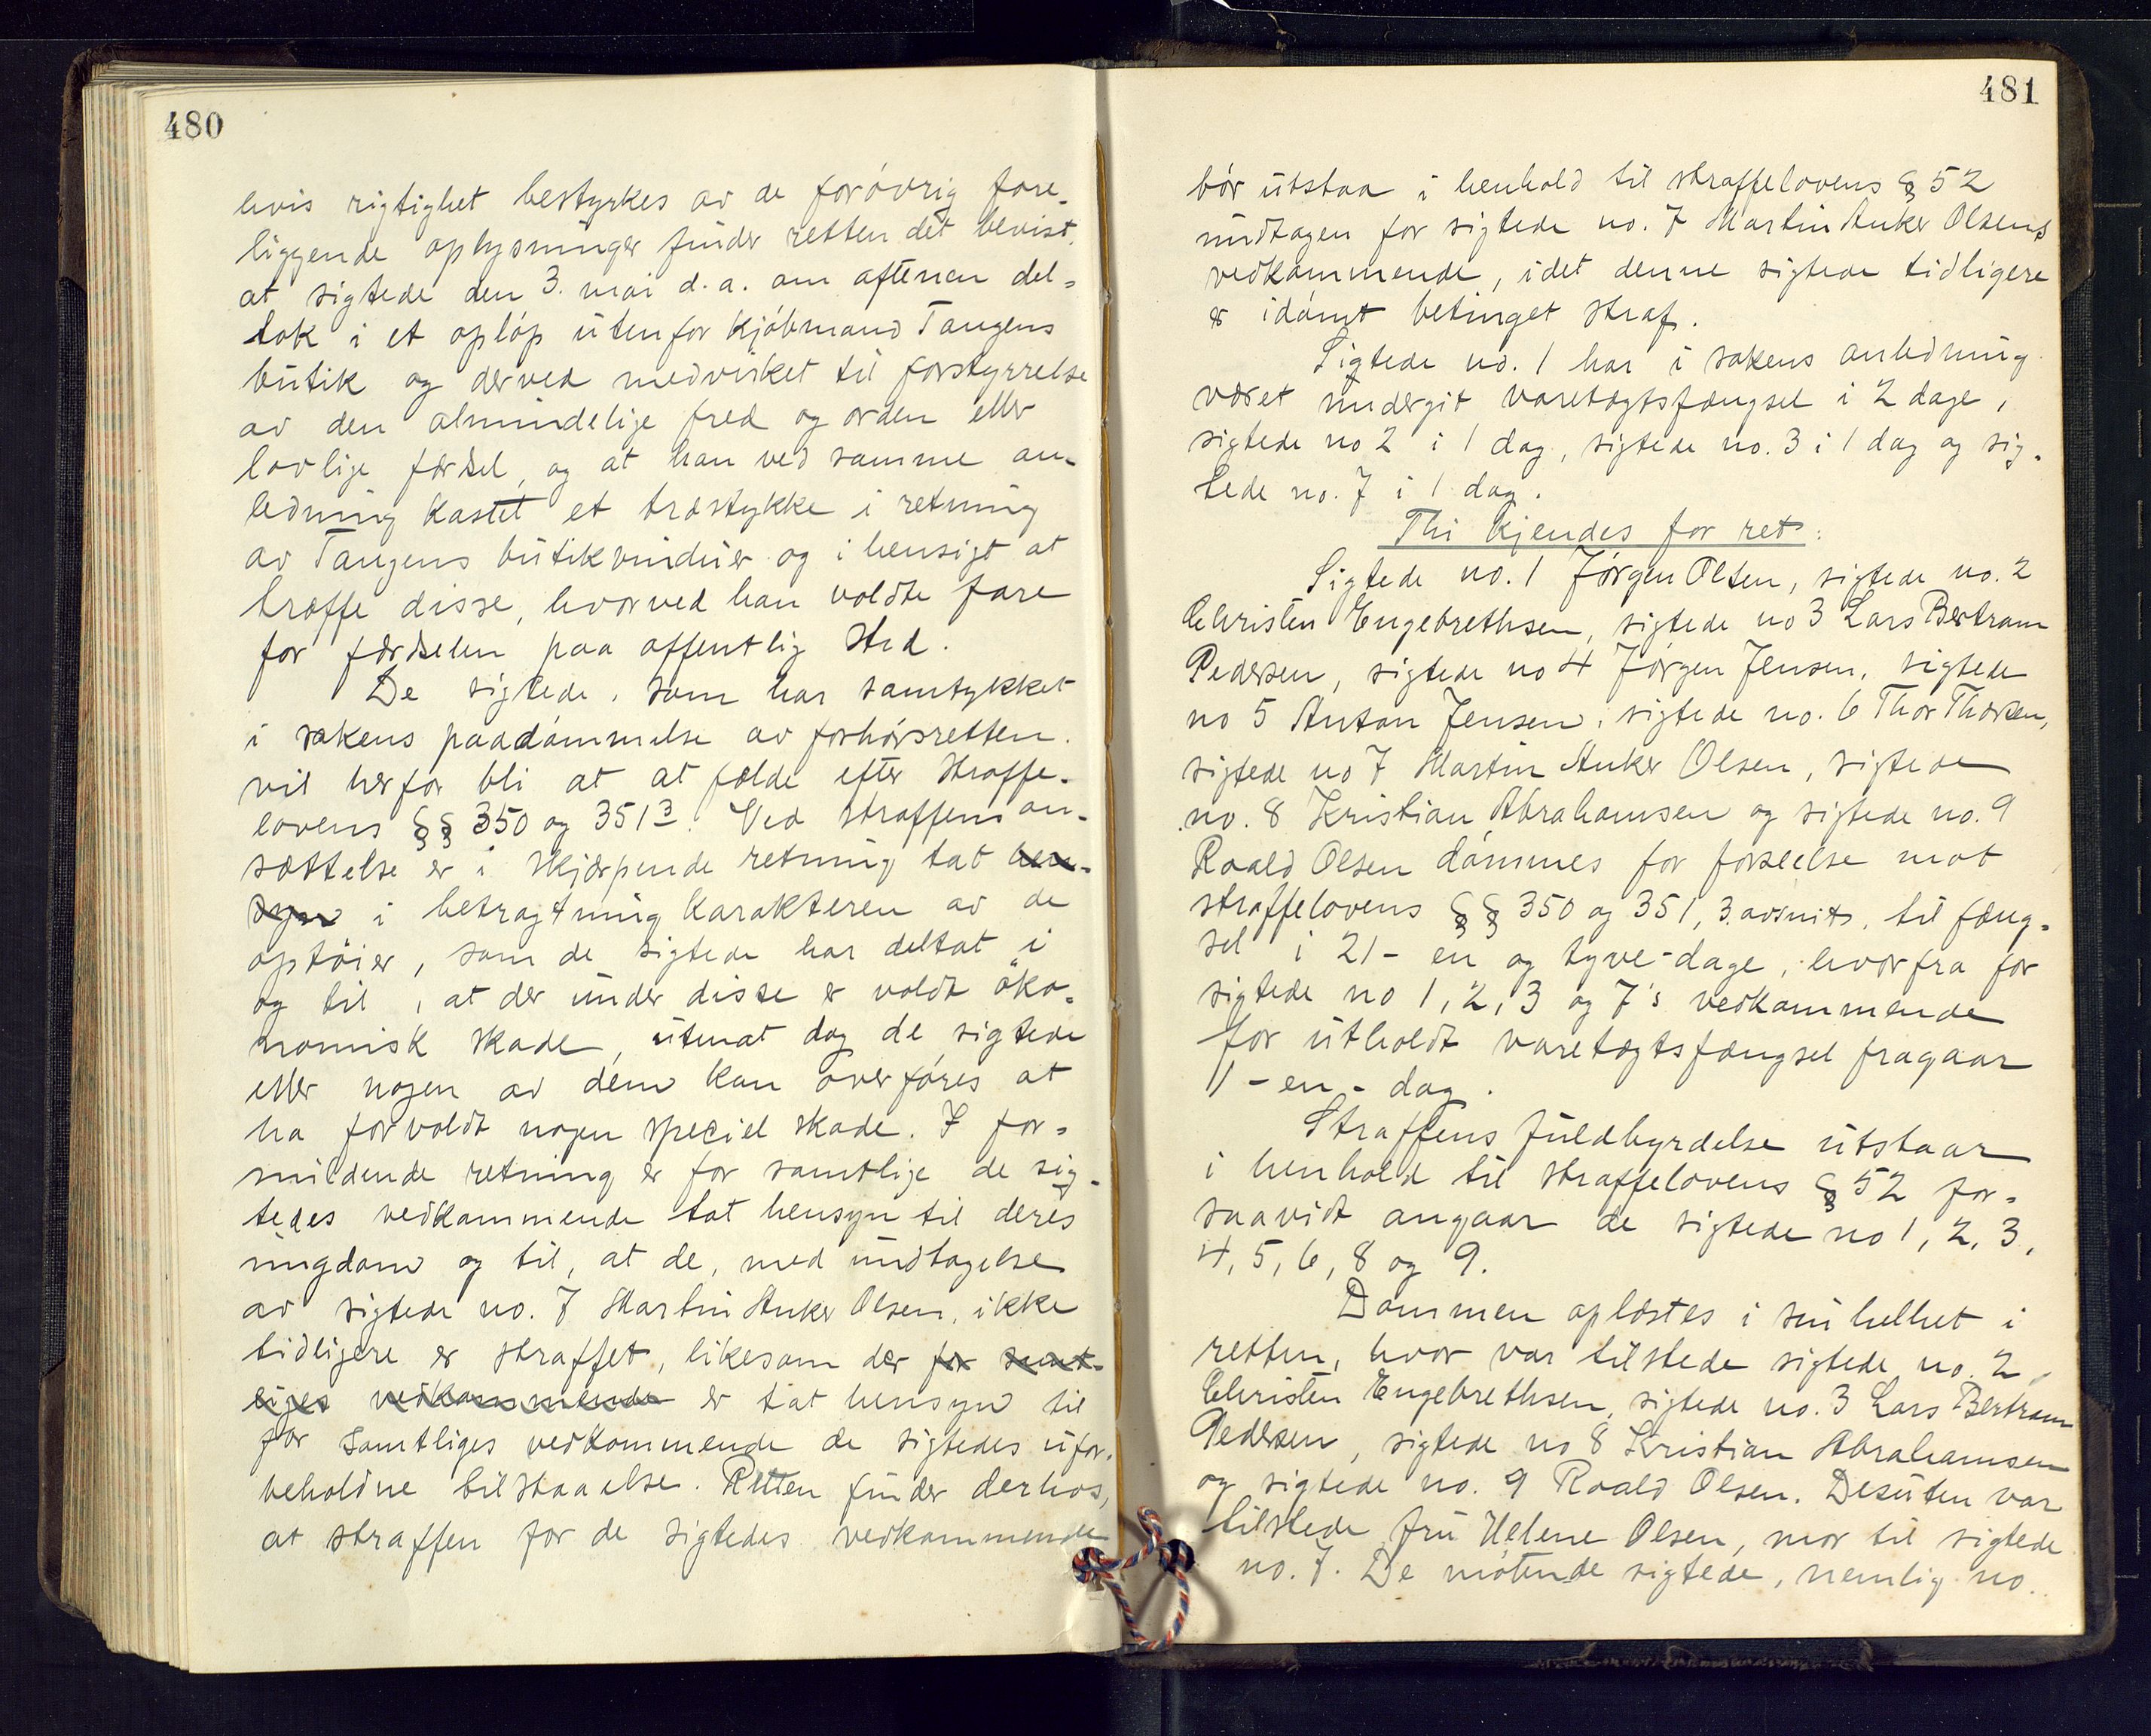 480
hvis rigtighet bestyrkes av de forövrig fore-
liggende oplysninger finder retten det bevist,
at sigtede den 3. mai d. a. om aftenen del-
tok i et opløp utenfor Kjöbmand Tangens
butik og derved medvirket til forstyrrelse
av den almindelige fred og orden eller
lovlige færdsel, og at han ved samme an-
ledning kastet et træstykke i retning
av Tangens butikvinduer og i hensigt at
træffe disse, hvorved han voldte fare
for færdselen paa offentlig sted.
De sigtede, som har samtykket
i sakens paadömmelse av forhörsretten.
vil herfor bli at at fælde efter Straffe-
lovens §§ 350 og 351³. Ved straffens an-
sættelse er i skjærpende retning tat hen-
syn i betragtning karakteren av de
optöier, som de sigtede har deltat i
og til, at der under disse er voldt öko-
nomisk skade, utenat dog de sigtede
eller nogen av dem kan overföres at
ha forvoldt nogen speciel skade. I for-
mildende retning er for samtlige de sig-
tedes vedkommende tat hensyn til deres
ungdom og til, at de, med undtagelse
av sigtede no. 7 Martin Anker Olsen, ikke
tidligere er straffet, likesom der for samt-
liges vedkommende er tat hensyn til
for samtliges vedkommende de sigtedes ufor-
beholdne tilstaaelse. Retten finder derhos,
at straffen for de sigtedes vedkommende
481
bör utstaa i henhold til straffelovens § 52
undtagen for sigtede no. 7 Martin Anker Olsens
vedkommende, idet denne sigtede tidligere
er idömt betinget straf.
Sigtede no. 1 har i sakens anledning
været undergit varetægtsfængsel i 2 dage,
sigtede no 2 i 1 dag, sigtede no. 3 i 1 dag og sig-
tede no. 7 i 1 dag.
Thi kjendes for ret:
Sigtede no. 1 Jörgen Olsen, sigtede no. 2
Christen Engebrethsen, sigtede no 3 Lars Bertram
Pedersen, sigtede no 4 Jörgen Jensen, sigtede
no 5 Anton Jensen, sigtede no. 6 Thor Thorsen,
sigtede no 7 Martin Anker Olsen, sigtede
no. 8 Kristian Abrahamsen og sigtede no. 9
Roald Olsen dömmes for forseelse mot
straffelovens §§ 350 og 351, 3. avsnit, til fæng-
sel i 21 - en og tyve - dage, hvorfra for
sigtede no 1, 2, 3 og 7's vedkommende
for utholdt varetægtsfængsel fragaar
1 - en - dag.
Straffens fuldbyrdelse utstaar
i henhold til straffelovens § 52 for-
saavidt angaar de sigtede no 1, 2, 3,
4, 5, 6, 8 og 9.
Dommen oplæstes i sin helhet i
retten, hvor var tilstede sigtede no. 2,
Christen Engebrethsen, sigtede no. 3 Lars Bertram
Pedersen, sigtede no 8 Kristian Abrahamsen
og sigtede no. 9 Roald Olsen. Desuten var
tilstede fru Helene Olsen, mor til sigtede
no. 7. De mötende sigtede, nemlig no.